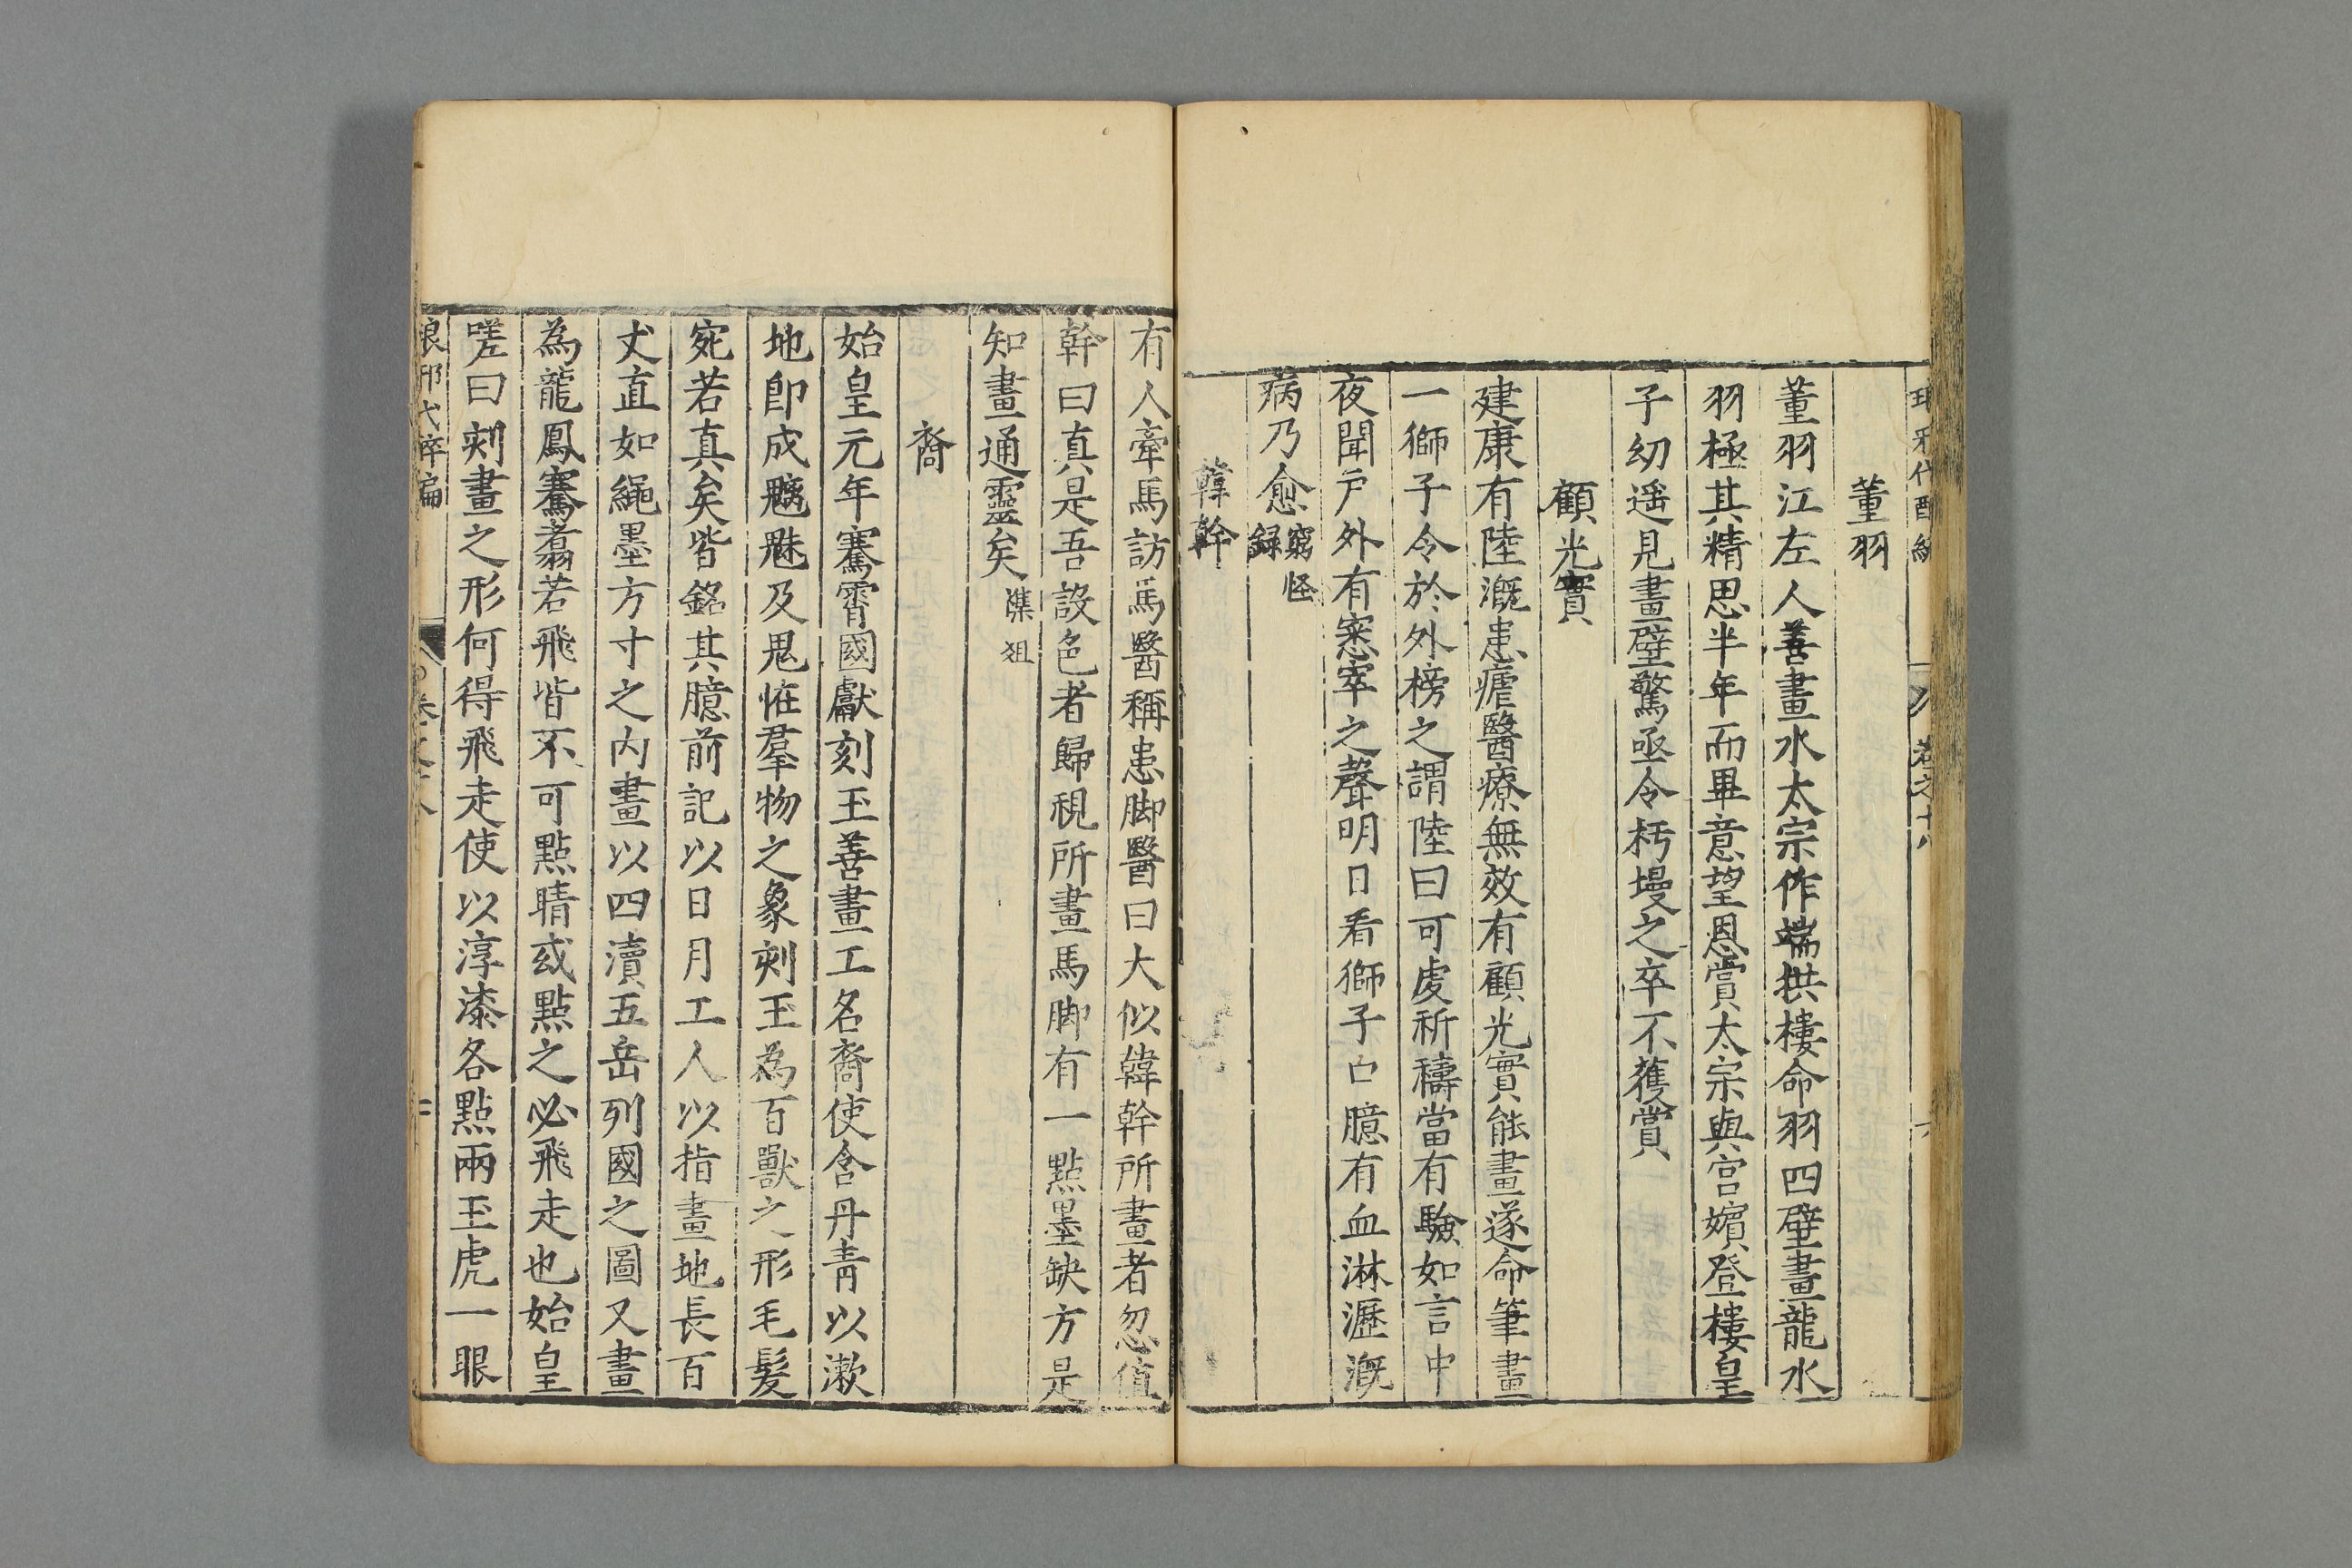 董羽
董羽江左人善畫水太宗作端拱樓命羽四壁畫龍水
羽極其精思半年而畢意望恩賞太宗與宫嬪登樓皇
子幼遥見畫壁驚亟令杇墁之卒不獲賞
顧光寳
建康有陸溉患瘧醫療無效有顧光寳能畫遂命筆畫
一獅子令於外榜之謂陸曰可虔祈禱當有驗如言中
夜聞戶外有窸窣之聲明日看獅子口臆有血淋瀝溉
病乃愈窮怪
録
韓幹
有人牽馬訪馬醫稱患脚醫曰大似韓幹所畫者忽值
幹曰真是吾設色者歸視所畫馬脚有一點墨缺方是
知畫通靈矣
裔
始皇元年騫霄國獻刻玉善畫工名裔使含丹青以漱
地即成魑魅及鬼怪羣物之象刻玉為百獸之形毛髮
宛若真矣皆銘其臆前記以日月工人以指畫地長百
丈直如繩墨方寸之内畫以四瀆五岳列國之圖又畫
為龍鳳騫翥若飛皆不可點睛或點之必飛走也始皇
嗟曰刻畫之形何得飛走使以淳漆各點兩玉虎一眼